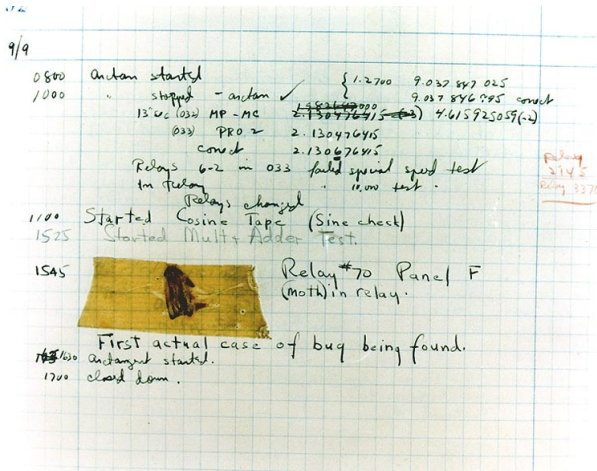 9/9
0800 Arctan started { 1.2700 9.037 847 025
1000 " stopped - arctan ✓ 9.037 846 995 correct
13"uc (032) MP - MC 2.130476415 (-3) 4.615925059(-2)
(033) PRO 2 2.130476415
correct 2.130676415
Relays 6-2 in 033 failed special speed test
In Relay " 10,000 test .
Relays changed
Relay
2145
Relay 3370
1100 Started Cosine Tape (Sine check)
1525 Started Mult + Adder Test.
1545 Relay #70 Panel F
(moth) in relay.
First actual case of bug being found.
1630 Arctangent started.
1700 closed down.